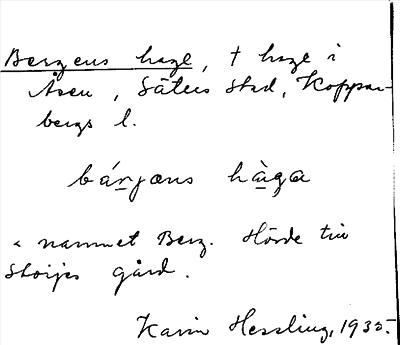 Bergens hage, † hage i
Åsen, Säters stad, Koppar-
bergs l.
bárjəns hàga
< namnet Berg. Hörde till
gård.
Karin Hessling, 1935.